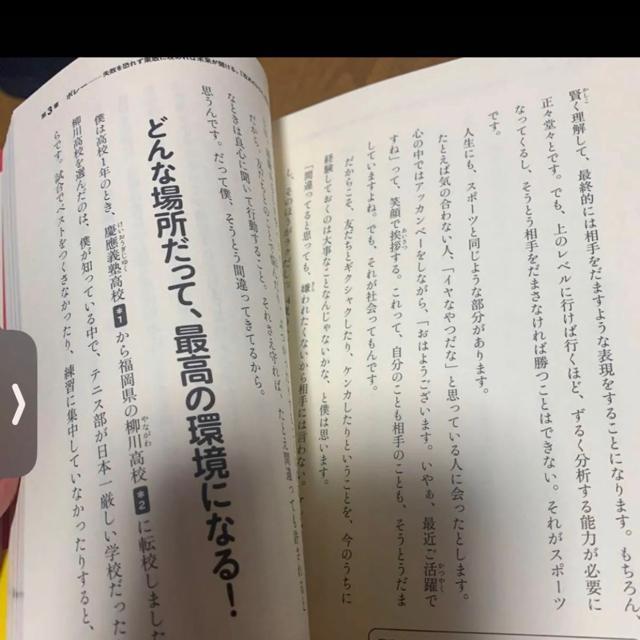 賢く理解して、最終的には相手をだますような表現をすることになります。もちろん
正々堂々とです。でも、上のレベルに行けば行くほど、ずるく分析する能力が必要に
なってくるし、そうとう相手をだまさなければ勝つことはできない。それがスポーツ
です。
人生にも、スポーツと同じような部分があります。
たとえば気の合わない人、「イヤなやつだな」と思っている人に会ったとします。
心の中ではアッカンベーをしながら、「おはようございます。いやぁ、最近ご活躍で
すね」って、笑顔で挨拶する。これって、自分のことも相手のことも、そうとうだま
していますよね。でも、それが社会ってもんです。
だからこそ、友だちとギクシャクしたり、ケンカしたりということを、今のうちに
経験しておくのは大事なことなんじゃないかな、と僕は思います。
「間違ってると思っても、嫌われたくないから相手には言わない
第3章 ボレー
失敗を恐れず果敢に攻めれば未来が開ける
なときは良心に聞いて行動すること。それさえ守れば、たとえ間違っても
思うんです。だって僕、そうとう間違ってきてるから。
どんな場所だって、最高の環境になる!
僕は高校1年のとき、慶應義塾高校※1から福岡県の柳川高校※2に転校しました
柳川高校を選んだのは、僕が知っている中で、テニス部が日本一厳しい学校だった
らです。試合でベストをつくさなかったり、練習に集中していなかったりすると、